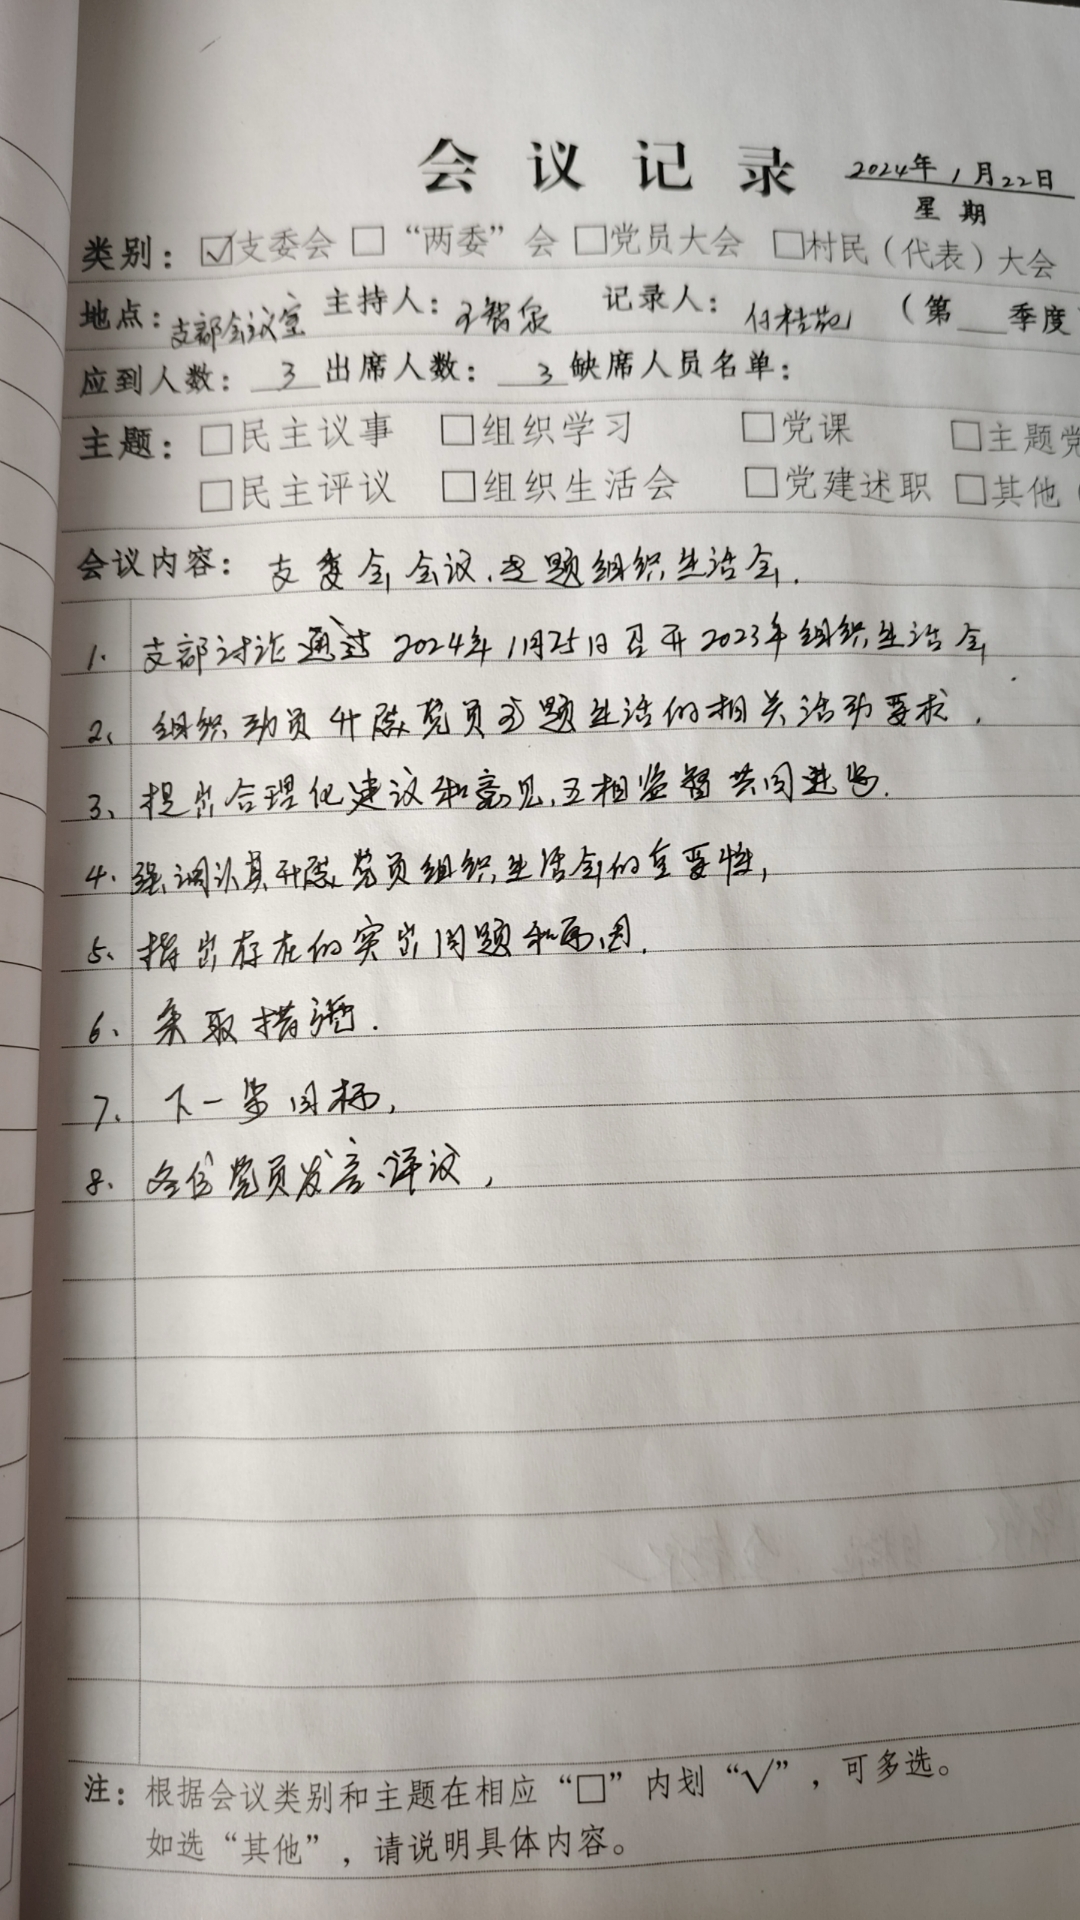 会议记录 2024年1月22日
星期
类别：☑支委会 □“两委”会 □党员大会 □村民（代表）大会
地点：支部会议室 主持人：王智泉 记录人：付桂苑 （第__季度
应到人数：3 出席人数：3 缺席人员名单：
主题：□民主议事 □组织学习 □党课 □主题党
□民主评议 □组织生活会 □党建述职 □其他（
会议内容：支委会会议.主题组织生活会.
1. 支部讨论通过2024年1月25日召开2023年组织生活会
2、组织动员开展党员主题生活的相关活动要求.
3、提出合理化建议和意见,互相监督共同进步.
4.强调认真开展党员组织生活会的重要性,
5、指出存在的突出问题和原因.
6、采取措施.
7、下一步目标,
8、各位党员发言、评议,
注：根据会议类别和主题在相应“□”内划“√”，可多选。
如选“其他”，请说明具体内容。